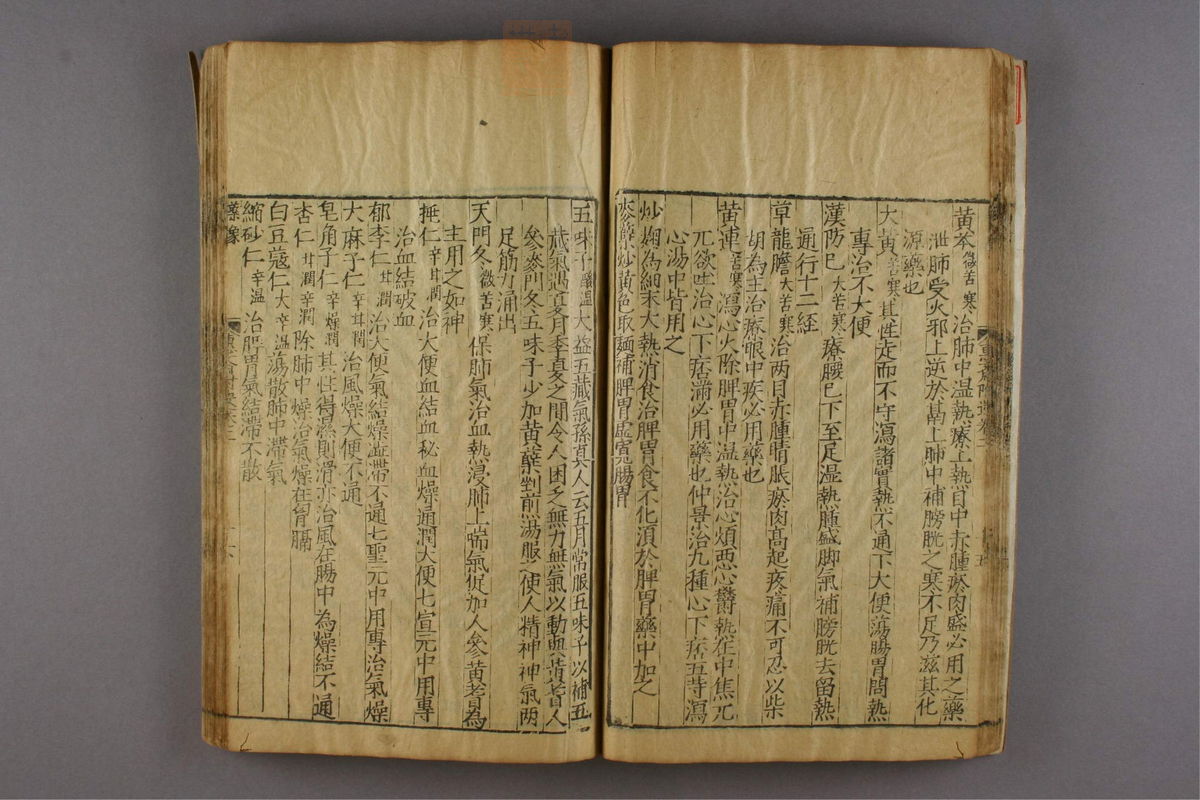 黃芩微苦寒治肺中温熱療上熱目中赤腫瘀肉盛必用之藥
泄肺受火邪上逆於鬲上肺中補膀胱之寒不足乃滋其化
源藥也
大黃苦寒其性走而不守瀉諸實熱不通下大便蕩腸胃間熱
專治不大便
漢防已大苦寒療腰已下至足湿熱腫盛脚氣補膀胱去留熱
通行十二經
草龍膽大苦寒治两目赤腫睛脹瘀肉髙起疼痛不可忍以柴
胡為主治療眼中疾必用藥也
黃連苦寒瀉心火除脾胃中温熱治心煩悪心欝熱在中焦兀
兀欲吐治心下痞滿必用藥也仲景治九種心下痞五䓁瀉
心湯中皆用之
炒麹為細末大熱消食治脾胃食不化湏於脾胃藥中加之
麥蘖炒黃色取麵補脾胃虛寛腸胃
五味子酸温大益五藏氣孫真人云五月常服五味子以補五
藏氣遇夏月季夏之間令人困乏無力無氣以動與黃耆人
參麥門冬五味子少加黃蘗剉煎湯服之使人精神神氣两
足筋力涌出
天門冬微苦寒保肺氣治血熱浸肺上喘氣促加人參黃耆為
主用之如神
桃仁辛甘潤治大便血結血秘血燥通潤大便七宣元中用專
治血結破血
郁李仁甘潤治大便氣結燥澁滯不通七聖元中用專治氣燥
大麻子仁辛甘潤治風燥大便不通
皂角子仁辛燥潤其性得濕則滑亦治風在腸中為燥結不通
杏仁甘潤辛潤除肺中燥治氣燥在胷膈
白豆蔻仁大辛温蕩散肺中滯氣
縮砂仁辛温治脾胃氣結滯不散